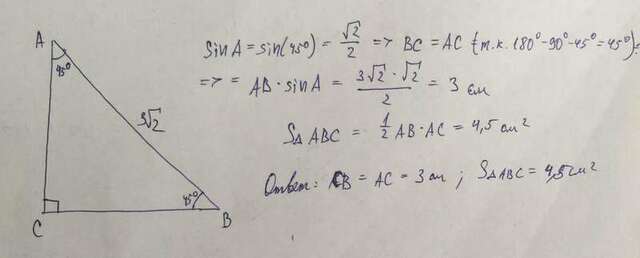 A
45°
3√2
45°
C
B
sin A = sin(45°) = √2/2 => BC = AC (т.к. 180°-90°-45°=45°) =
=> = AB · sin A = 3√2 · √2 / 2 = 3 см
S△ABC = 1/2 AB · AC = 4,5 см²
Ответ: CB = AC = 3 см ; S△ABC = 4,5 см²